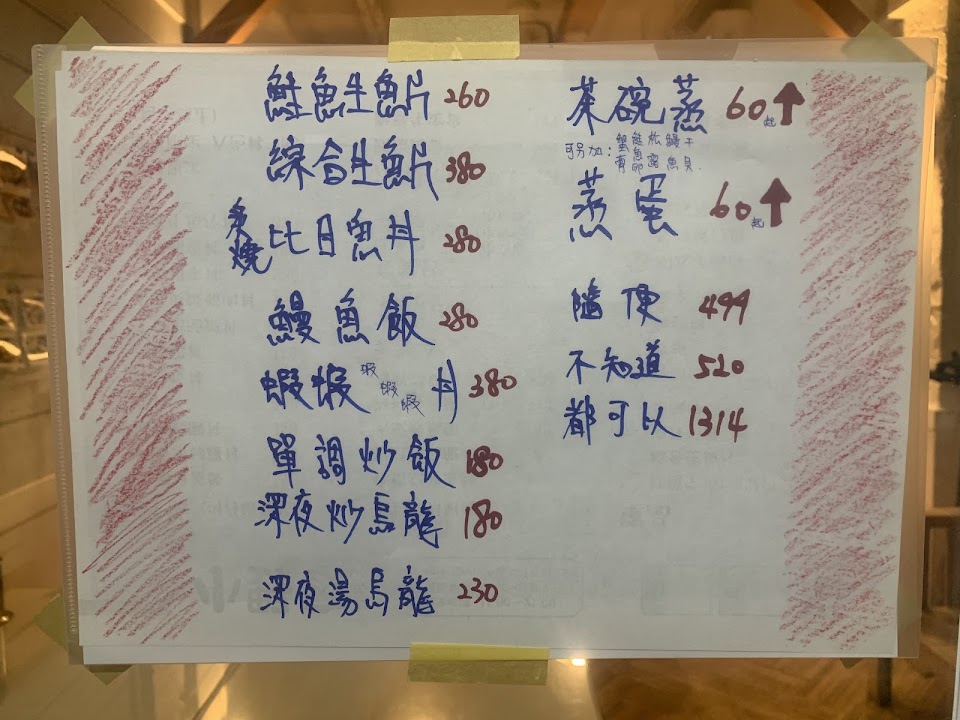 鮭魚生魚片 260
綜合生魚片 380
炙燒比目魚丼 280
鰻魚飯 280
蝦蝦蝦蝦蝦丼 380
單調炒飯 180
深夜炒烏龍 180
深夜湯烏龍 230
茶碗蒸 60起↑
可另加：
蒸蛋 60起↑
隨便 499
不知道 520
都可以 1314